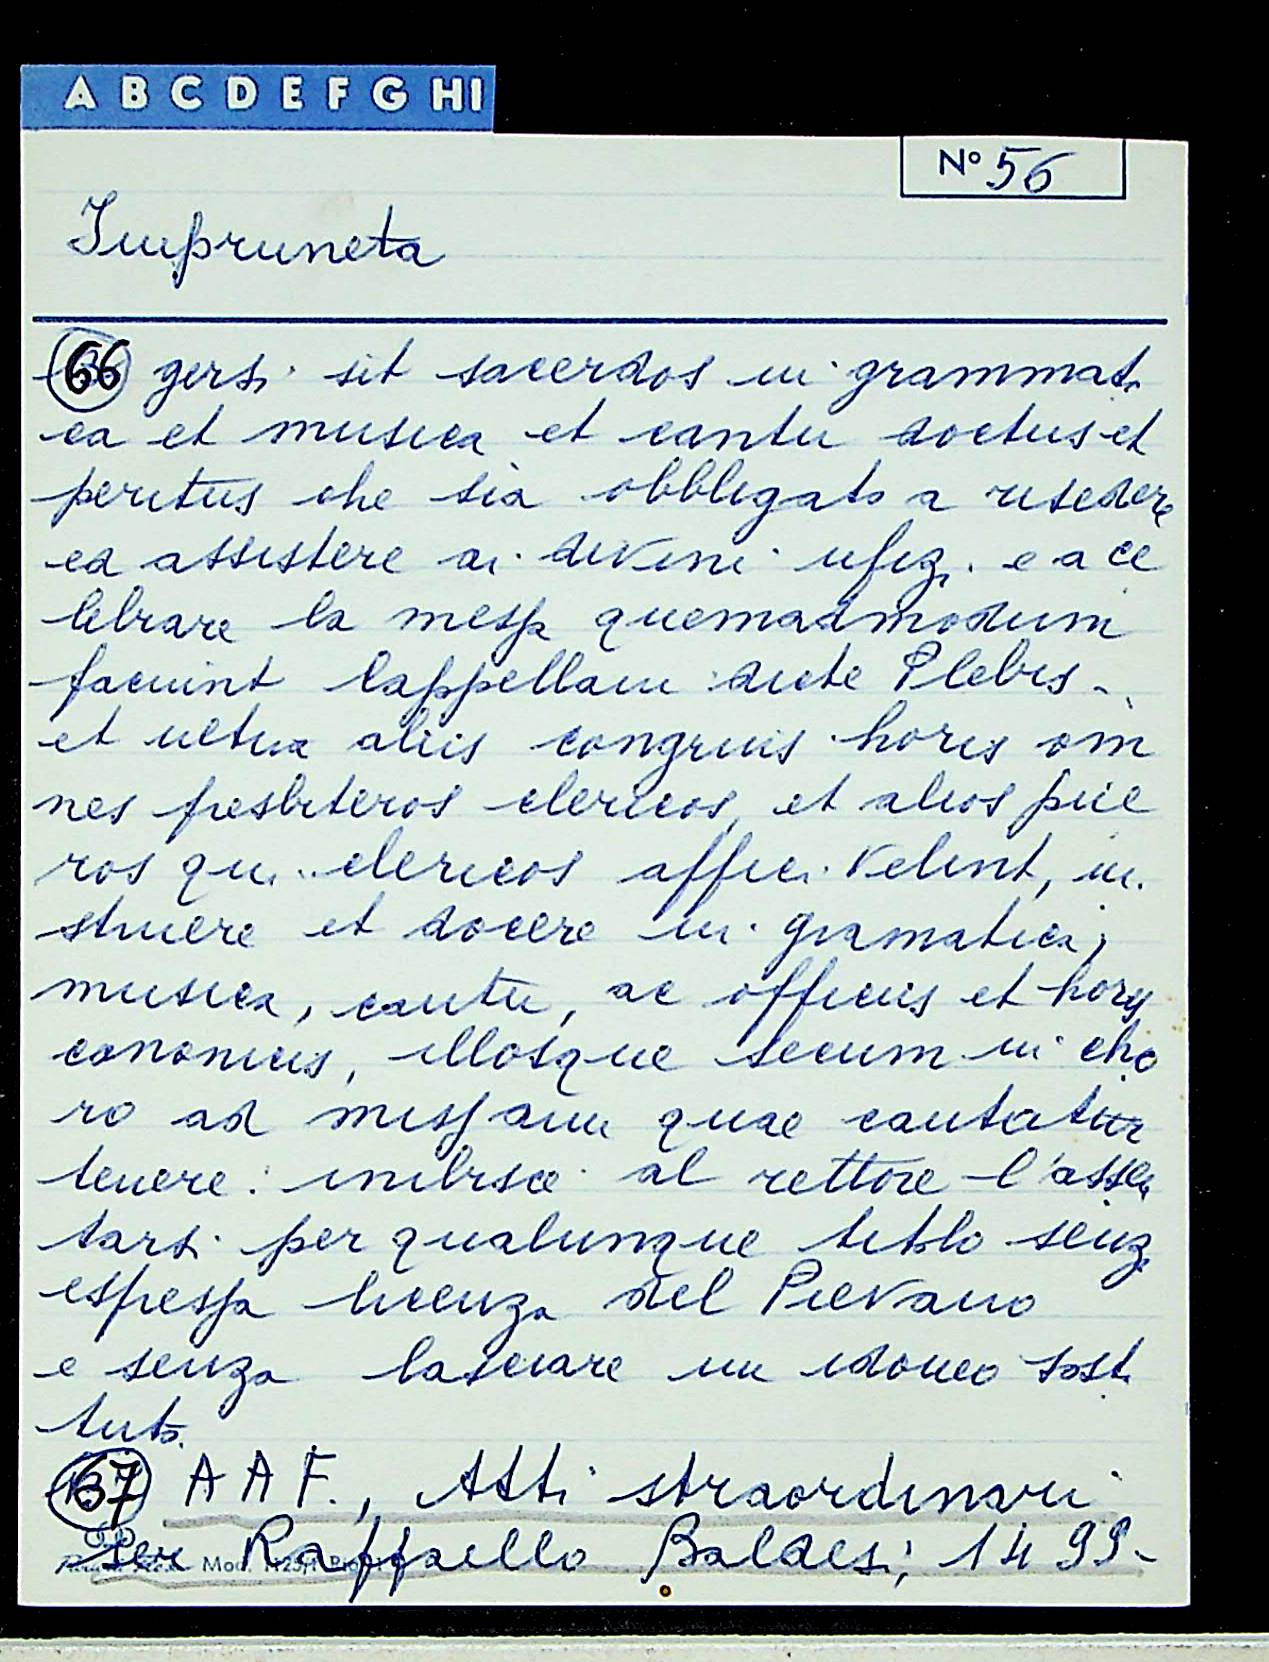 A B C D E F G H I
Nº 56
Impruneta
66 gersi sit sacerdos in grammati
ca et musica et cantu doctus et
peritus che sia obbligato a risedere
ed assistere ai divini ufizi e a ce
lebrare la messa quemadmodum
faciunt cappellani dicte Plebis -
et ultra aliis congruis horis om
nes presbiteros clericos, et alios pue
ros qui clericos affici velint, in
struere et docere in gramatica,
musica, cantu, ac officiis et horis
canonicis, illosque secum in cho
ro ad missam quae cantatur
tenere: inibisce al rettore l'assen
tarsi per qualunque titolo senza
espessa licenza del Pievano
e senza lasciare un idoneo sosti
tuto.
67 A A F., Atti straordinari
ser Raffaello Baldesi; 1499-
Mod.